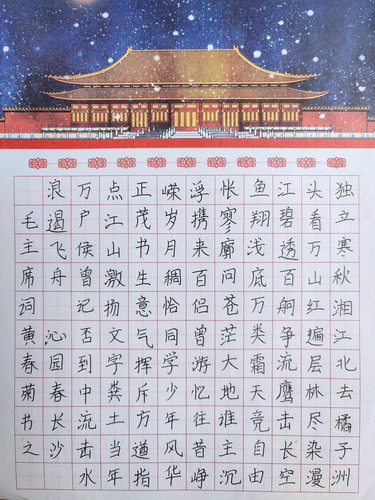 独立寒秋湘江北去橘子洲
头看万山红遍层林尽染漫
江碧透百舸争流鹰击长空
鱼翔浅底万类霜天竞自由
怅寥廓问苍茫大地谁主沉
浮携来百侣曾游忆往昔峥
嵘岁月稠恰同学少年风华
正茂书生意气挥斥方遒指
点江山激扬文字粪土当年
万户侯曾记否到中流击水
浪遏飞舟 沁园春长沙
毛主席词黄春菊书之